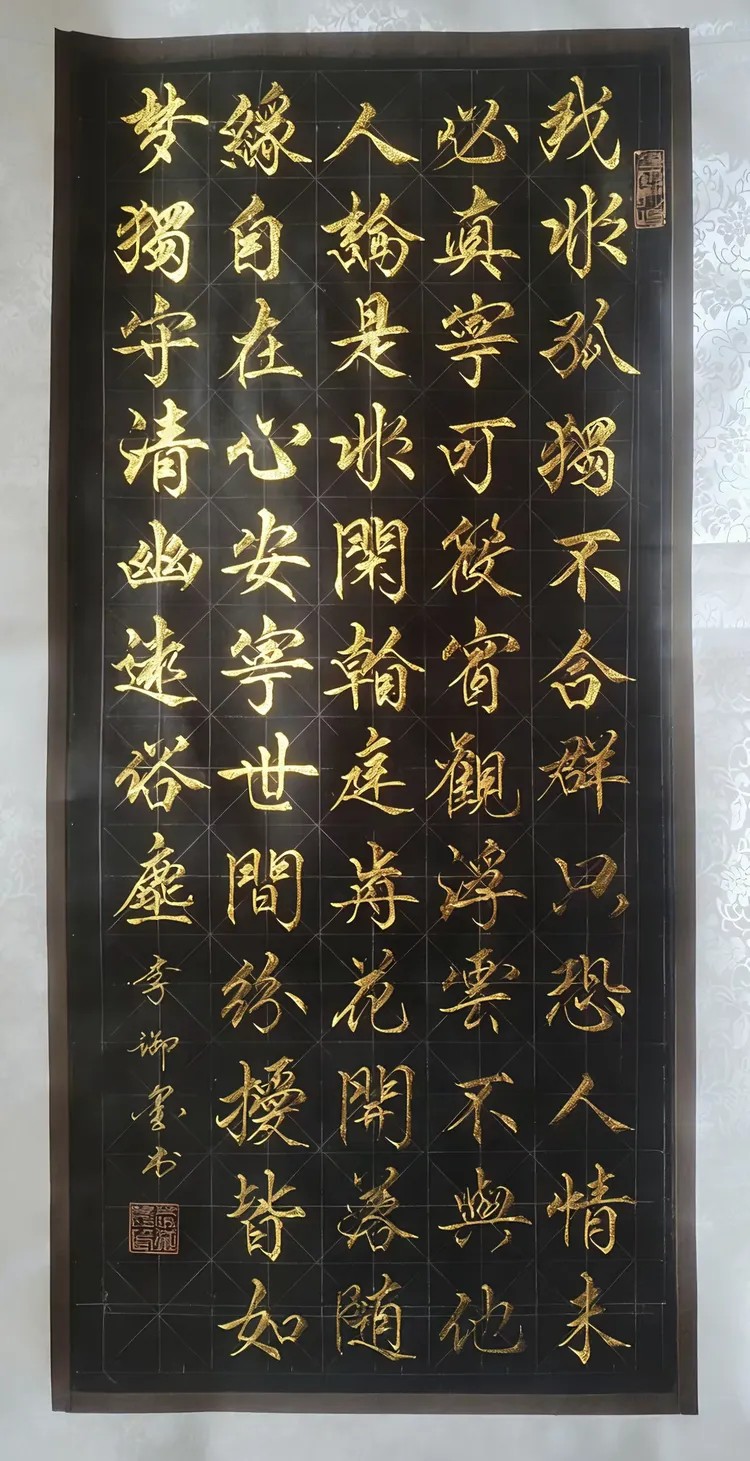 我非孤獨不合群只恐人情未
必真寧可觀浮雲不與他
人論是非閑看庭前花開落随
緣自在心安寧世間紛擾皆如
梦獨守清幽逺俗塵
李御墨书